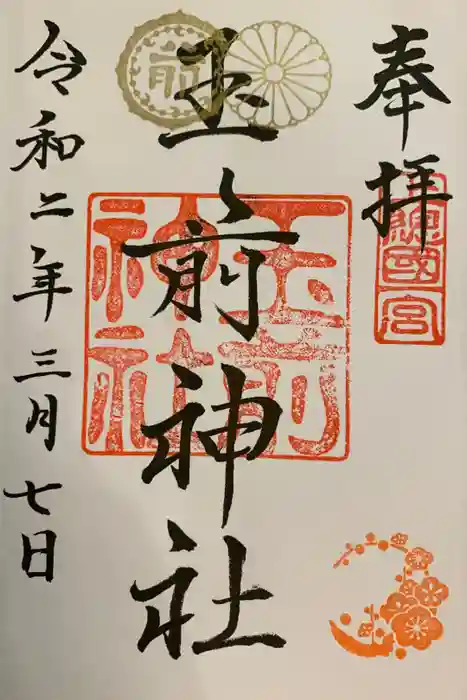 奉拝
玉前神社
令和二年三月七日
玉前神社
前
國一宮